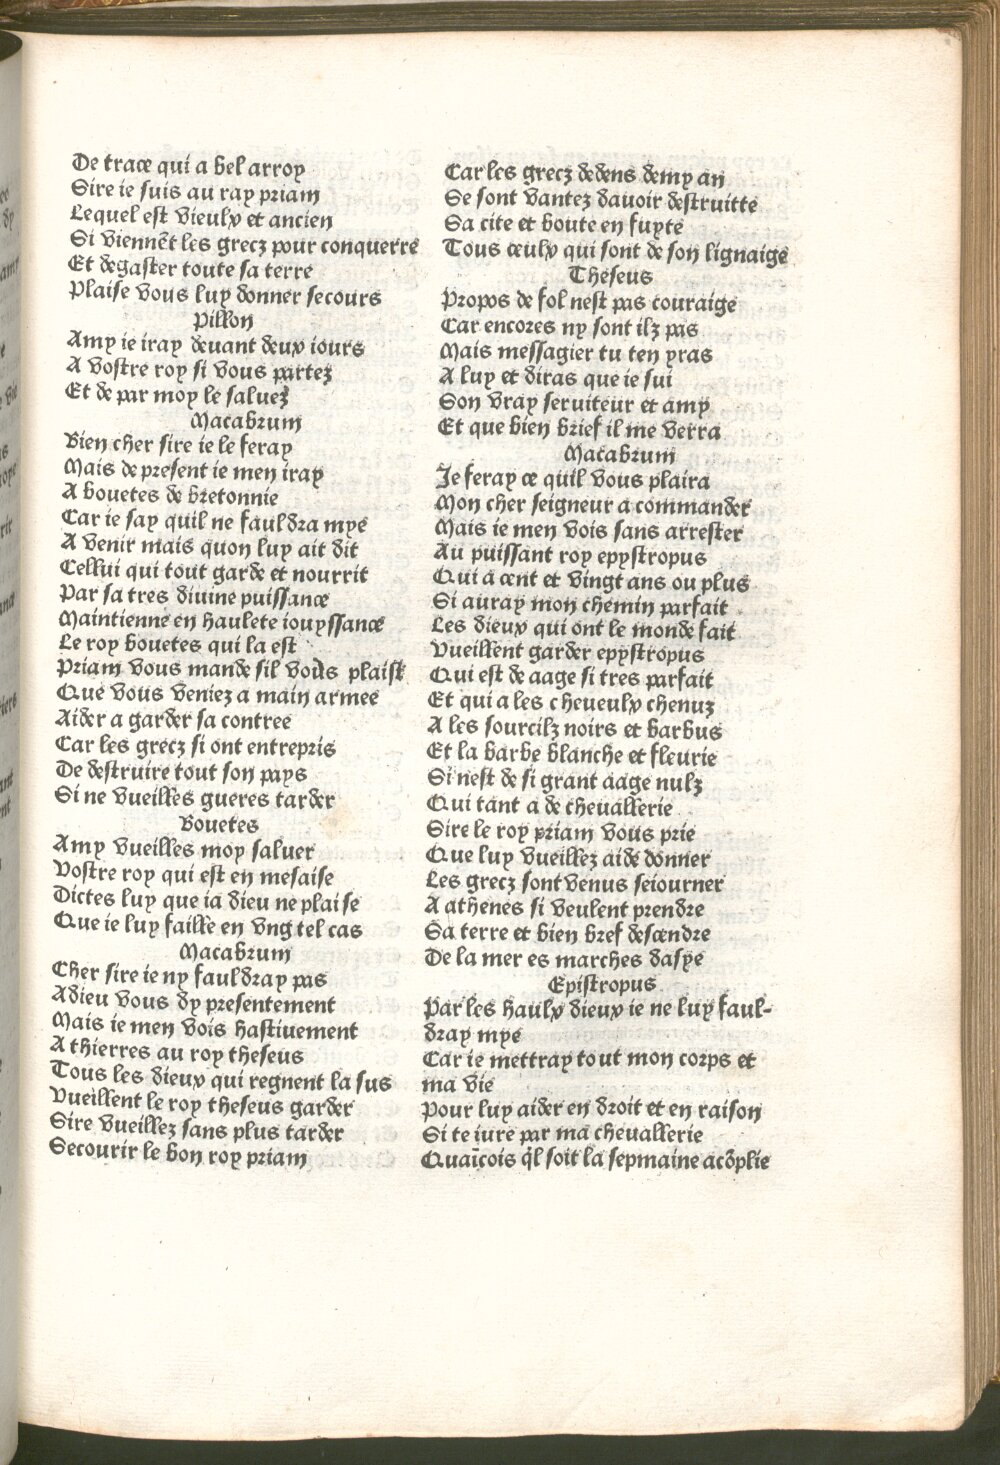 De trace qui a bel arroy
Sire ie suis au ray priam
Lequel est vieulx et ancien
Si viennẽt les grecz pour conquerre
Et degaster toute sa terre
Plaise vous luy donner secours
Pillon
Amy ie iray deuant deux iours
A vostre roy si vous partez
Et de par moy le saluez
Macabrum
Bien cher sire ie le feray
Mais de present ie men iray
A bouetes de bretonnie
Car ie say quil ne fauldra mye
A venir mais quon luy ait dit
Cellui qui tout garde et nourrit
Par sa tres diuine puissance
Maintienne en haulete iouyssance
Le roy bouetes qui la est
Priam vous mande sil vous plaist
Que vous veniez a main armee
Aider a garder sa contree
Car les grecz si ont entrepris
De destruire tout son pays
Si ne vueilles gueres tarder
Bouetes
Amy vueilles moy saluer
Vostre roy qui est en mesaise
Dictes luy que ia dieu ne plaise
Que ie luy faille en vng tel cas
Macabrum
Cher sire ie ny fauldray pas
Adieu vous dy presentement
Mais ie men vois hastiuement
A thierres au roy theseus
Tous les dieux qui regnent la sus
Vueillent le roy theseus garder
Sire vueillez sans plus tarder
Secourir le bon roy priam
Car les grecz dedens demy an
Se sont vantez dauoir destruitte
Sa cite et boute en fuyte
Tous ceulx qui sont de son lignaige
Theseus
Propos de fol nest pas couraige
Car encores ny sont ilz pas
Mais messagier tu ten yras
A luy et diras que ie sui
Son vray seruiteur et amy
Et que bien brief il me verra
Macabrum
Je feray ce quil vous plaira
Mon cher seigneur a commander
Mais ie men vois sans arrester
Au puissant roy epystropus
Qui a cent et vingt ans ou plus
Si auray mon chemin parfait
Les dieux qui ont le monde fait
Vueillent garder epystropus
Qui est de aage si tres parfait
Et qui a les cheueulx chenuz
A les sourcilz noirs et barbus
Et la barbe blanche et fleurie
Si nest de si grant aage nulz
Qui tant a de cheuallerie
Sire le roy priam vous prie
Que luy vueillez aide donner
Les grecz sont venus seiourner
A athenes si veulent prendre
Sa terre et bien bref descendre
De la mer es marches dasye
Epistropus
Par les haulx dieux ie ne luy faul-
dray mye
Car ie mettray tout mon corps et
ma vie
Pour luy aider en droit et en raison
Si te iure par ma cheuallerie
Quaĩcois q̃l soit la sepmaine acõplie